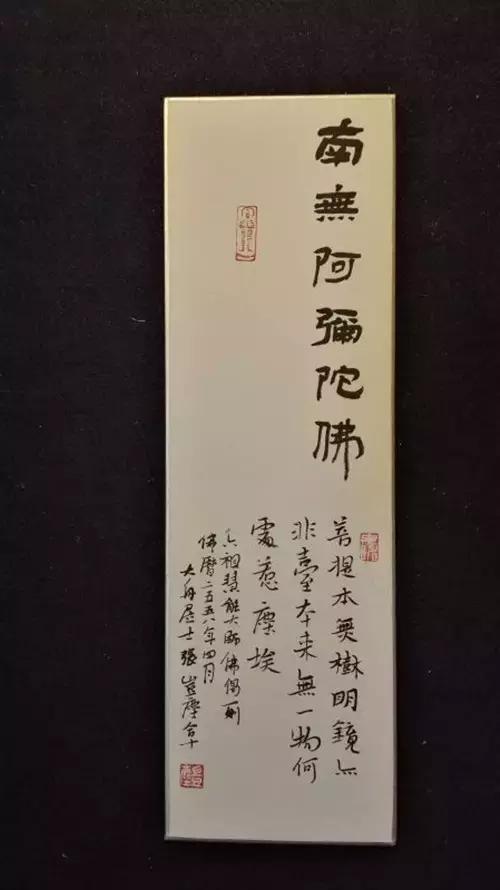 南無阿彌陀佛
菩提本無樹明鏡亦
非臺本来無一物何
處惹塵埃
六祖慧能大師佛偈一則
佛曆二五五八年四月
大舟居士張豈塵合十